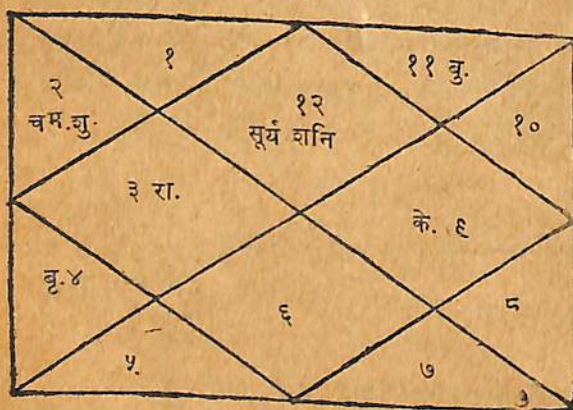 १
११ बु.
२
चम.शु.
१२
सूर्य शनि
१०
३ रा.
के. ६
बृ.४
६
८
५.
७